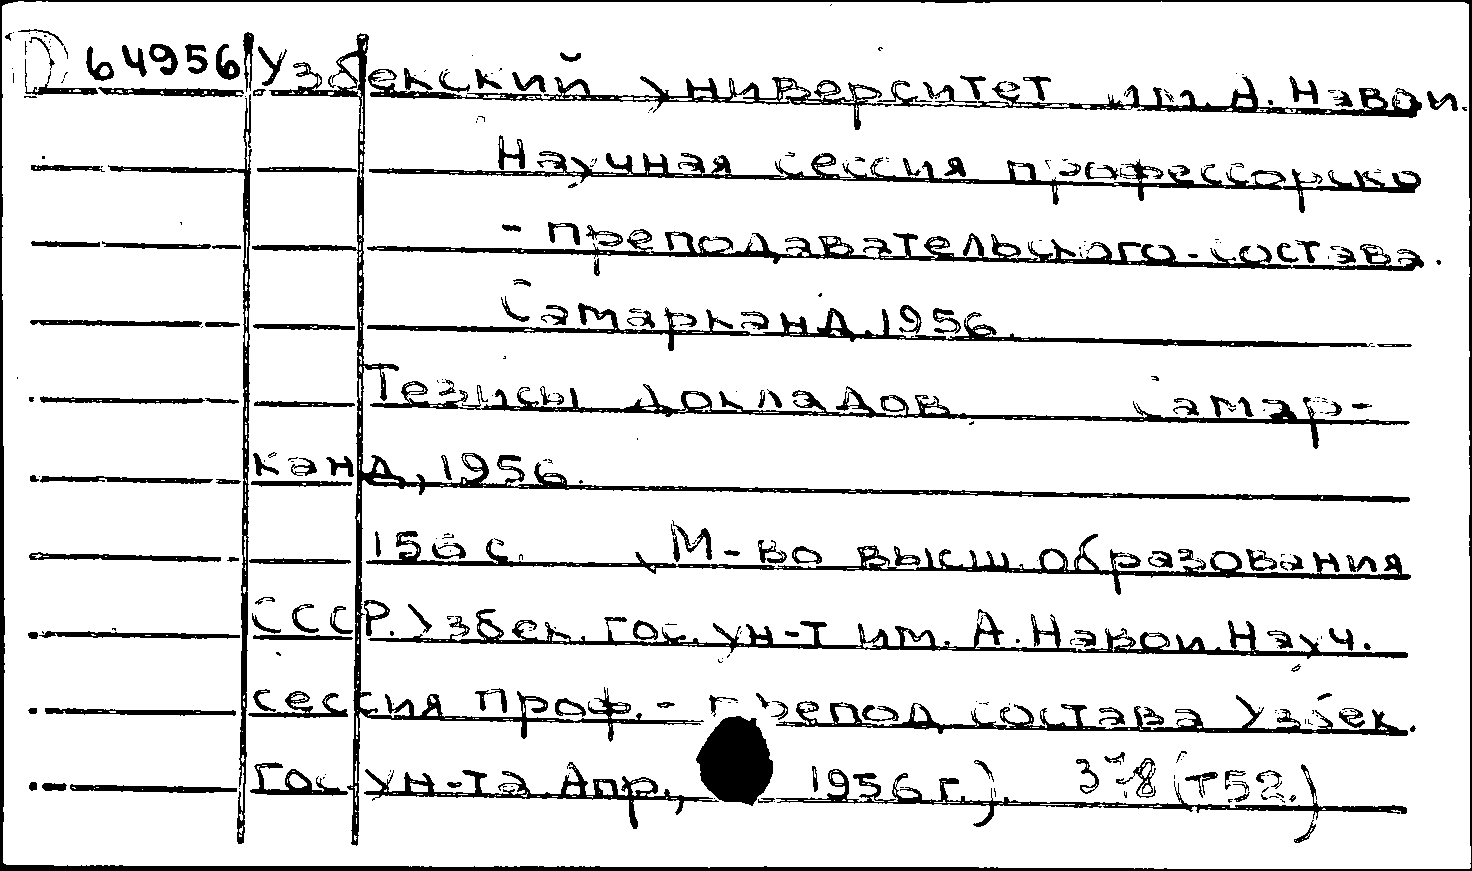 D 64956 Узбекский университет им. А. Навои.
Научная сессия профессорско
- преподавательского-состава.
Самарканд.1956.
Тезисы докладов. Самар-
канд, 1956.
156 с. (М-во высш. образования
СССР. Узбек. гос. ун-т им. А. Навои. Науч.
сессия проф.- препод. состава Узбек.
гос. ун-та Апр., 1956 г.). 378(Т52.)